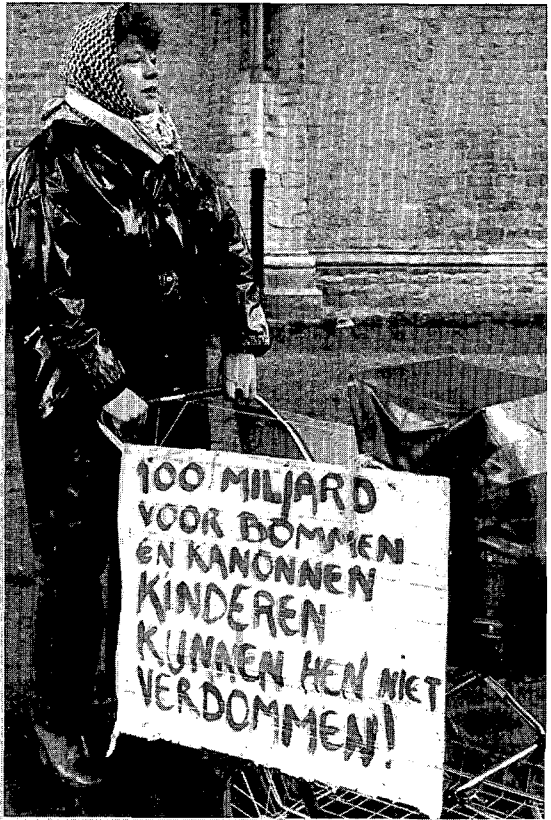 100 MILJARD
VOOR BOMMEN
EN KANONNEN
KINDEREN
KUNNEN HEN NIET
VERDOMMEN!